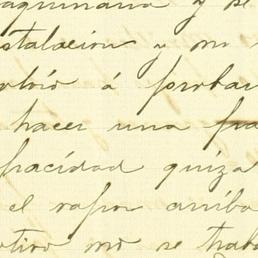 aquinaria y se
stalacion y no
á probar
hacer una
pacidad quiza
el vapor arriba
otivo no se traba